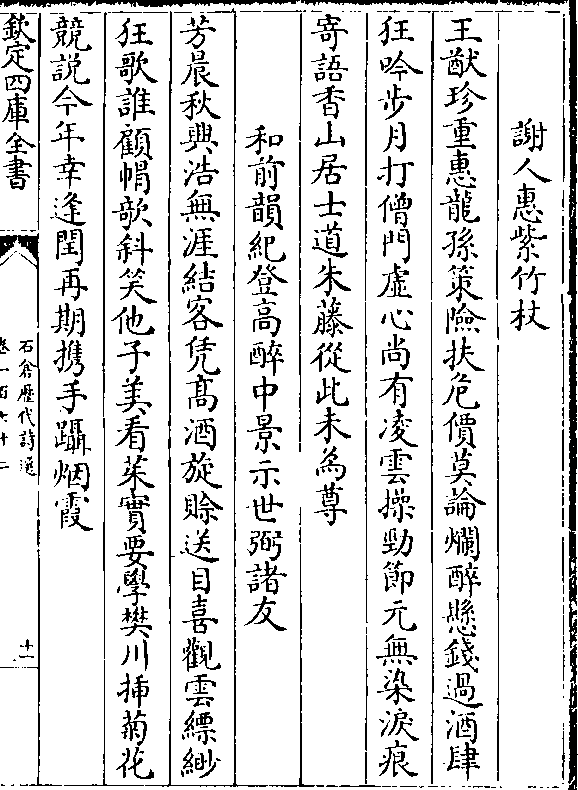 謝人惠紫竹杖
王猷珍重惠龍孫策險扶危價莫論爛醉懸錢過酒肆
狂吟步月打僧門虛心尚有凌雲操勁節元無染淚痕
寄語香山居士道朱藤從此未為尊
和前韻紀登高醉中景示世弼諸友
芳晨秋興浩無涯結客凭髙酒旋賒送目喜觀雲縹緲
狂歌誰顧帽欹斜笑他子美看茱實要學樊川揷菊花
競説今年幸逢閏再期攜手躡烟霞
欽定四庫全書
石倉歷代詩選
卷一百六十二
十一